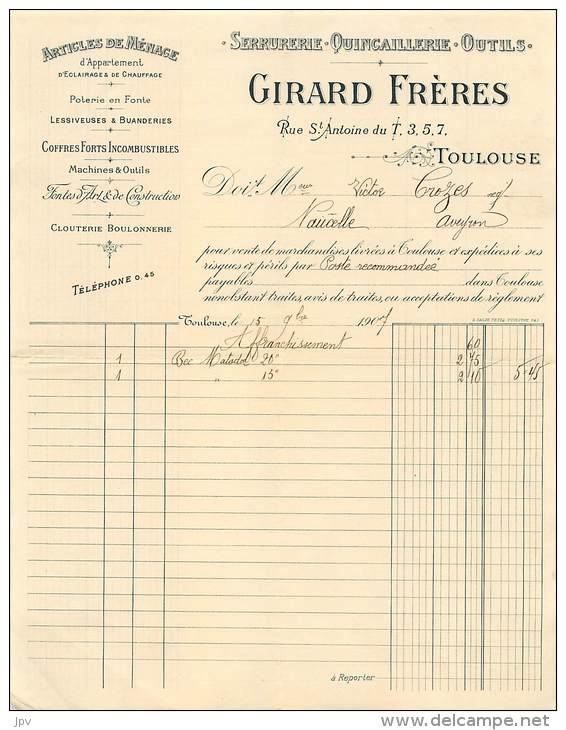 ARTICLES DE MÉNAGE
d'Appartement
D'ECLAIRAGE & DE CHAUFFAGE
Poterie en Fonte
LESSIVEUSES & BUANDERIES
COFFRES FORTS INCOMBUSTIBLES
Machines & Outils
Fontes d'Art & de Construction
CLOUTERIE BOULONNERIE
TÉLÉPHONE 0.45
SERRURERIE · QUINCAILLERIE · OUTILS
GIRARD FRÈRES
Rue St Antoine du T, 3, 5, 7,
TOULOUSE
Doit Mr Victor Crozes
Naucelle Aveyron
pour vente de marchandises livrées à Toulouse et expédiées à ses
risques et périls par Poste recommandée
payables dans Toulouse
nonobstant traites, avis de traites, ou acceptations de règlement
Toulouse, le 15 9bre 1907
Affranchissement 60
1 Bec Matador 20" 2 75
1 " 15" 2 10 5.45
à Reporter
jpv
delcampe.net